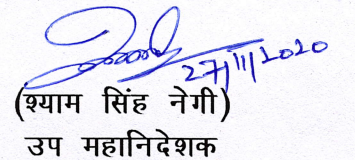 27/11/2020
(श्याम सिंह नेगी)
उप महानिदेशक